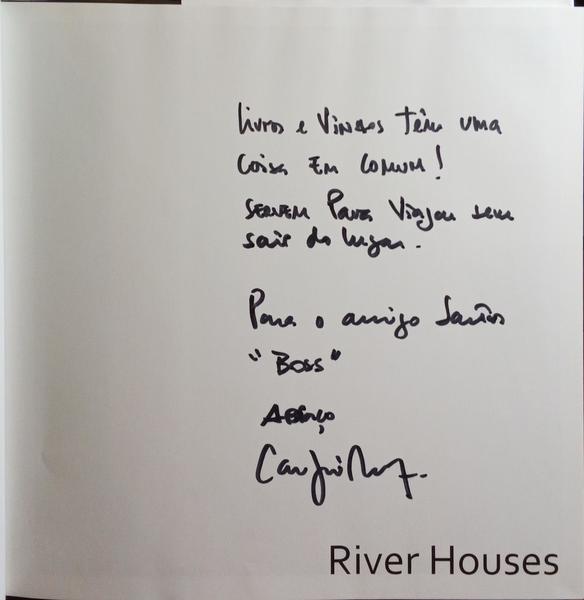 Livros e Vinhos têm uma
coisa em comum!
servem para viajar sem
sair do lugar.
Para o amigo Santos
"Boss"
Abraço
River Houses